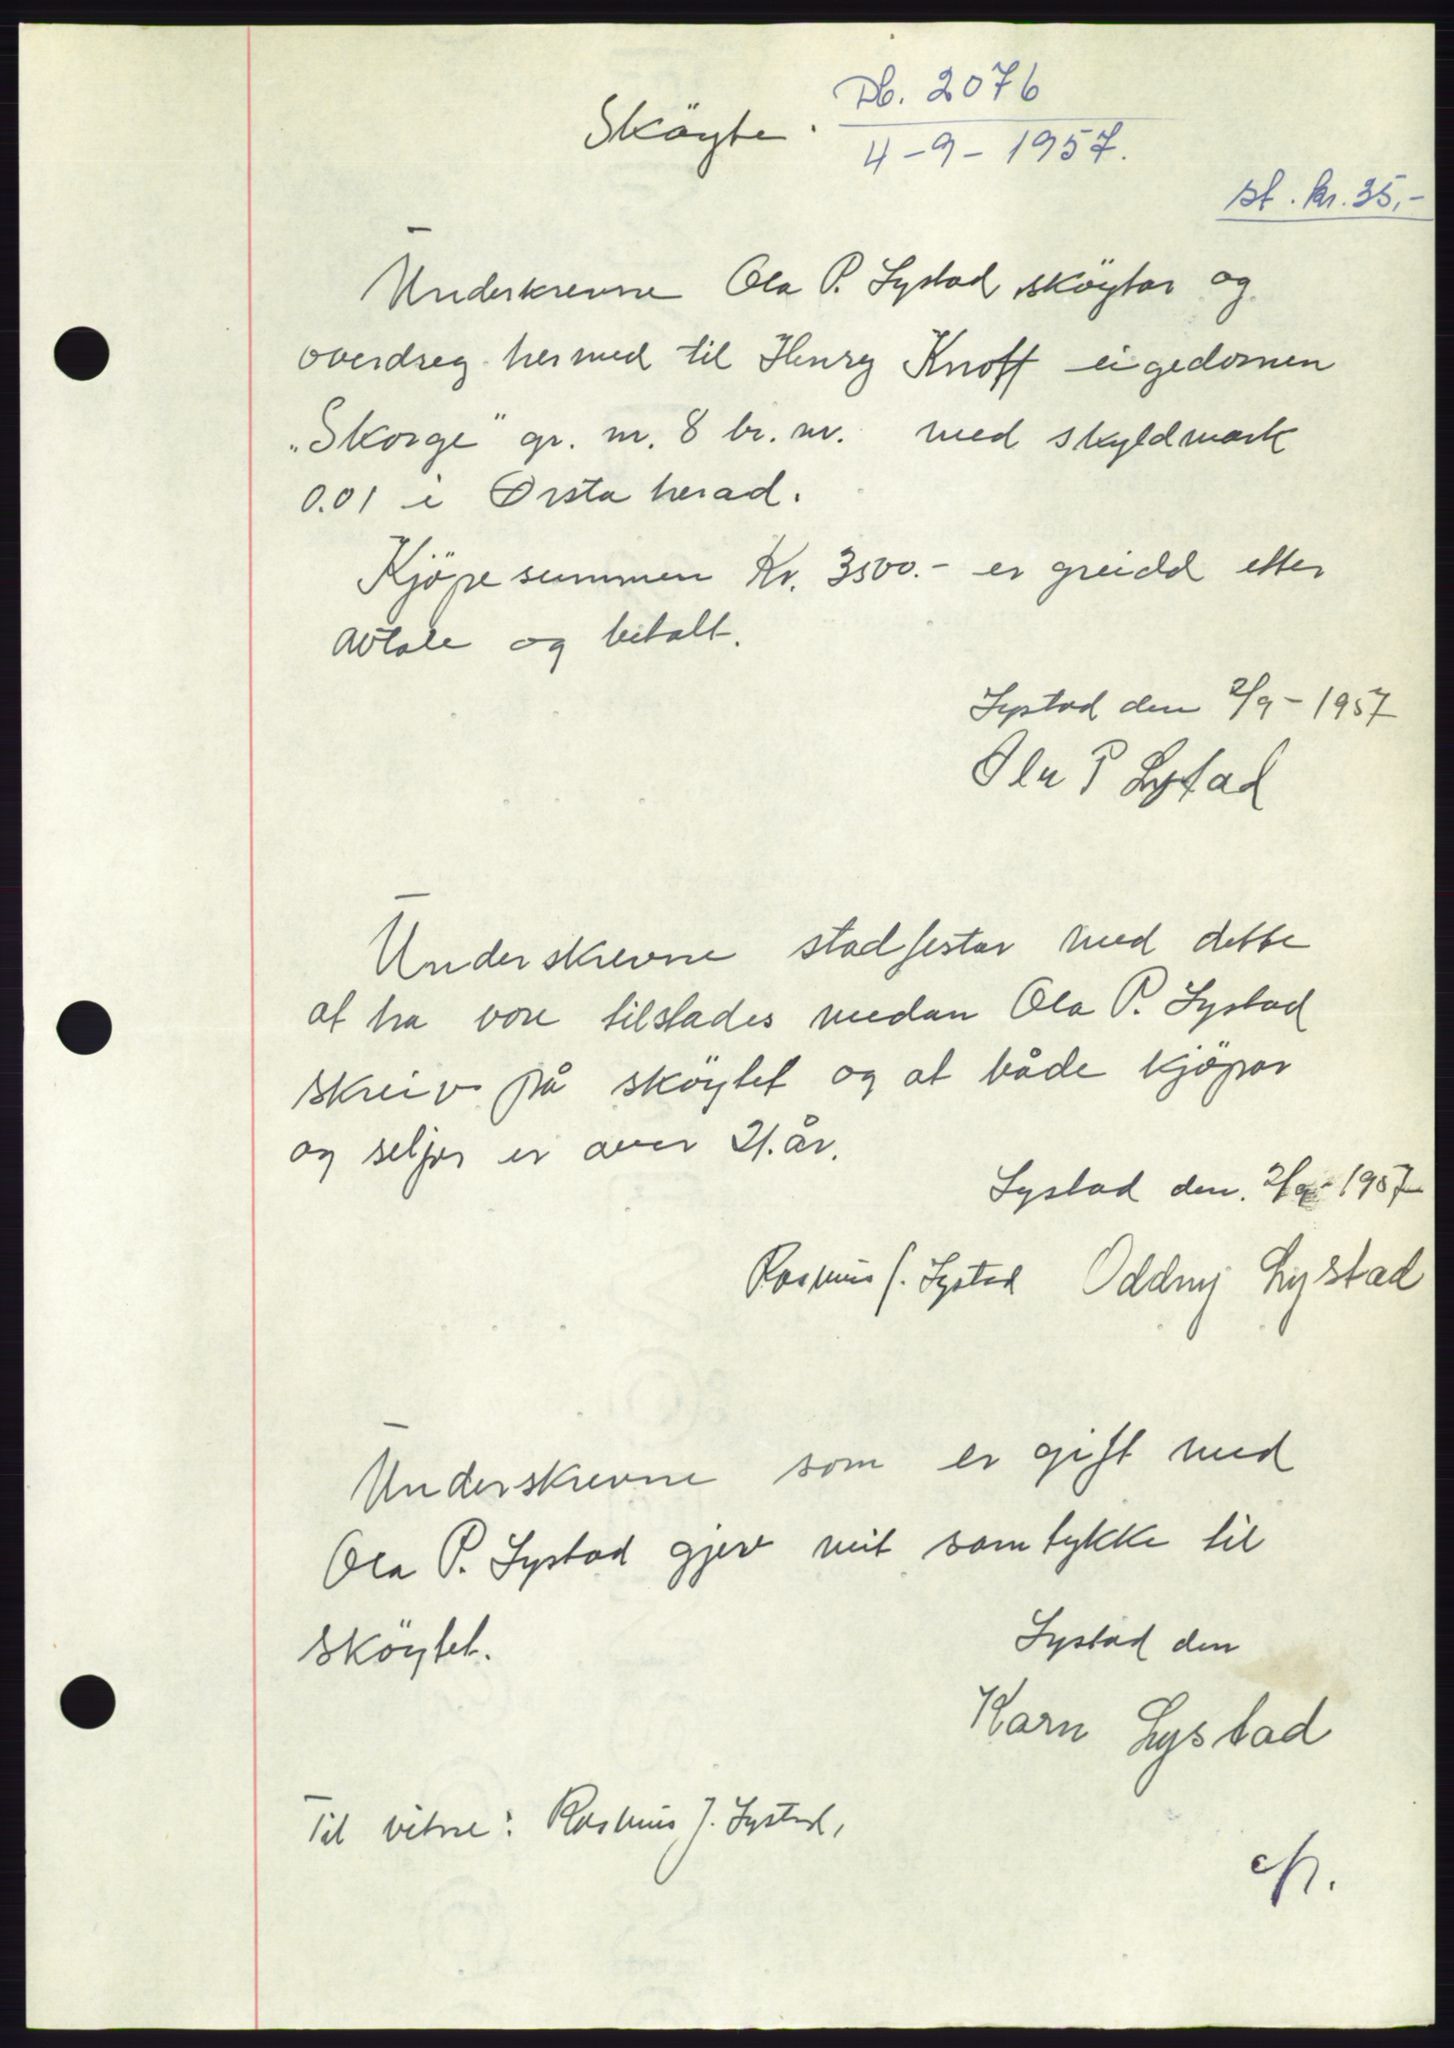 Db. 2076
Sköyte.
4-9-1957.
st. kr. 35,-
Underkrevne Ola P. Lystad sköytar og
overdreg hermed til Henry Knoff eigedomen
"Skorge" gr. nr. 8 br. nr. med skyldmark
0.01 i Ørsta herad.
Kjöpesummen Kr. 3500.- er greidd etter
avtale og betalt.
Lystad den 2/9-1957
Ola P Lystad
Underskrevne stadfestar med dette
at ha vore tilstades medan Ola P. Lystad
skreiv på sköytet og at både kjöpar
og seljar er over 21. år.
Lystad den. 2/9-1957
Rasmus J. Lystad Oddny Lystad
Underskrevne som er gift med
Ola P. Lystad gjev mit samtykke til
sköytet.
Lystad den
Karn Lystad
Til vitne: Rasmus J. Lystad,